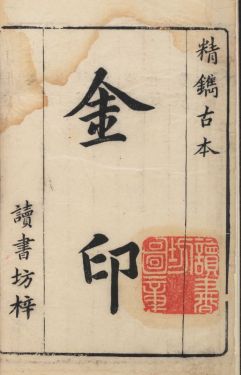 精鐫古本
金印
讀書坊梓
讀書坊圖章